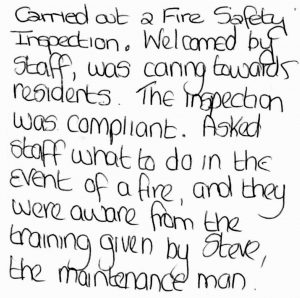 Carried out a Fire Safety
Inspection. Welcomed by
Staff, was caring towards
residents. The inspection
was compliant. Asked
staff what to do in the
event of a fire, and they
were aware from the
training given by Steve,
the maintenance man.